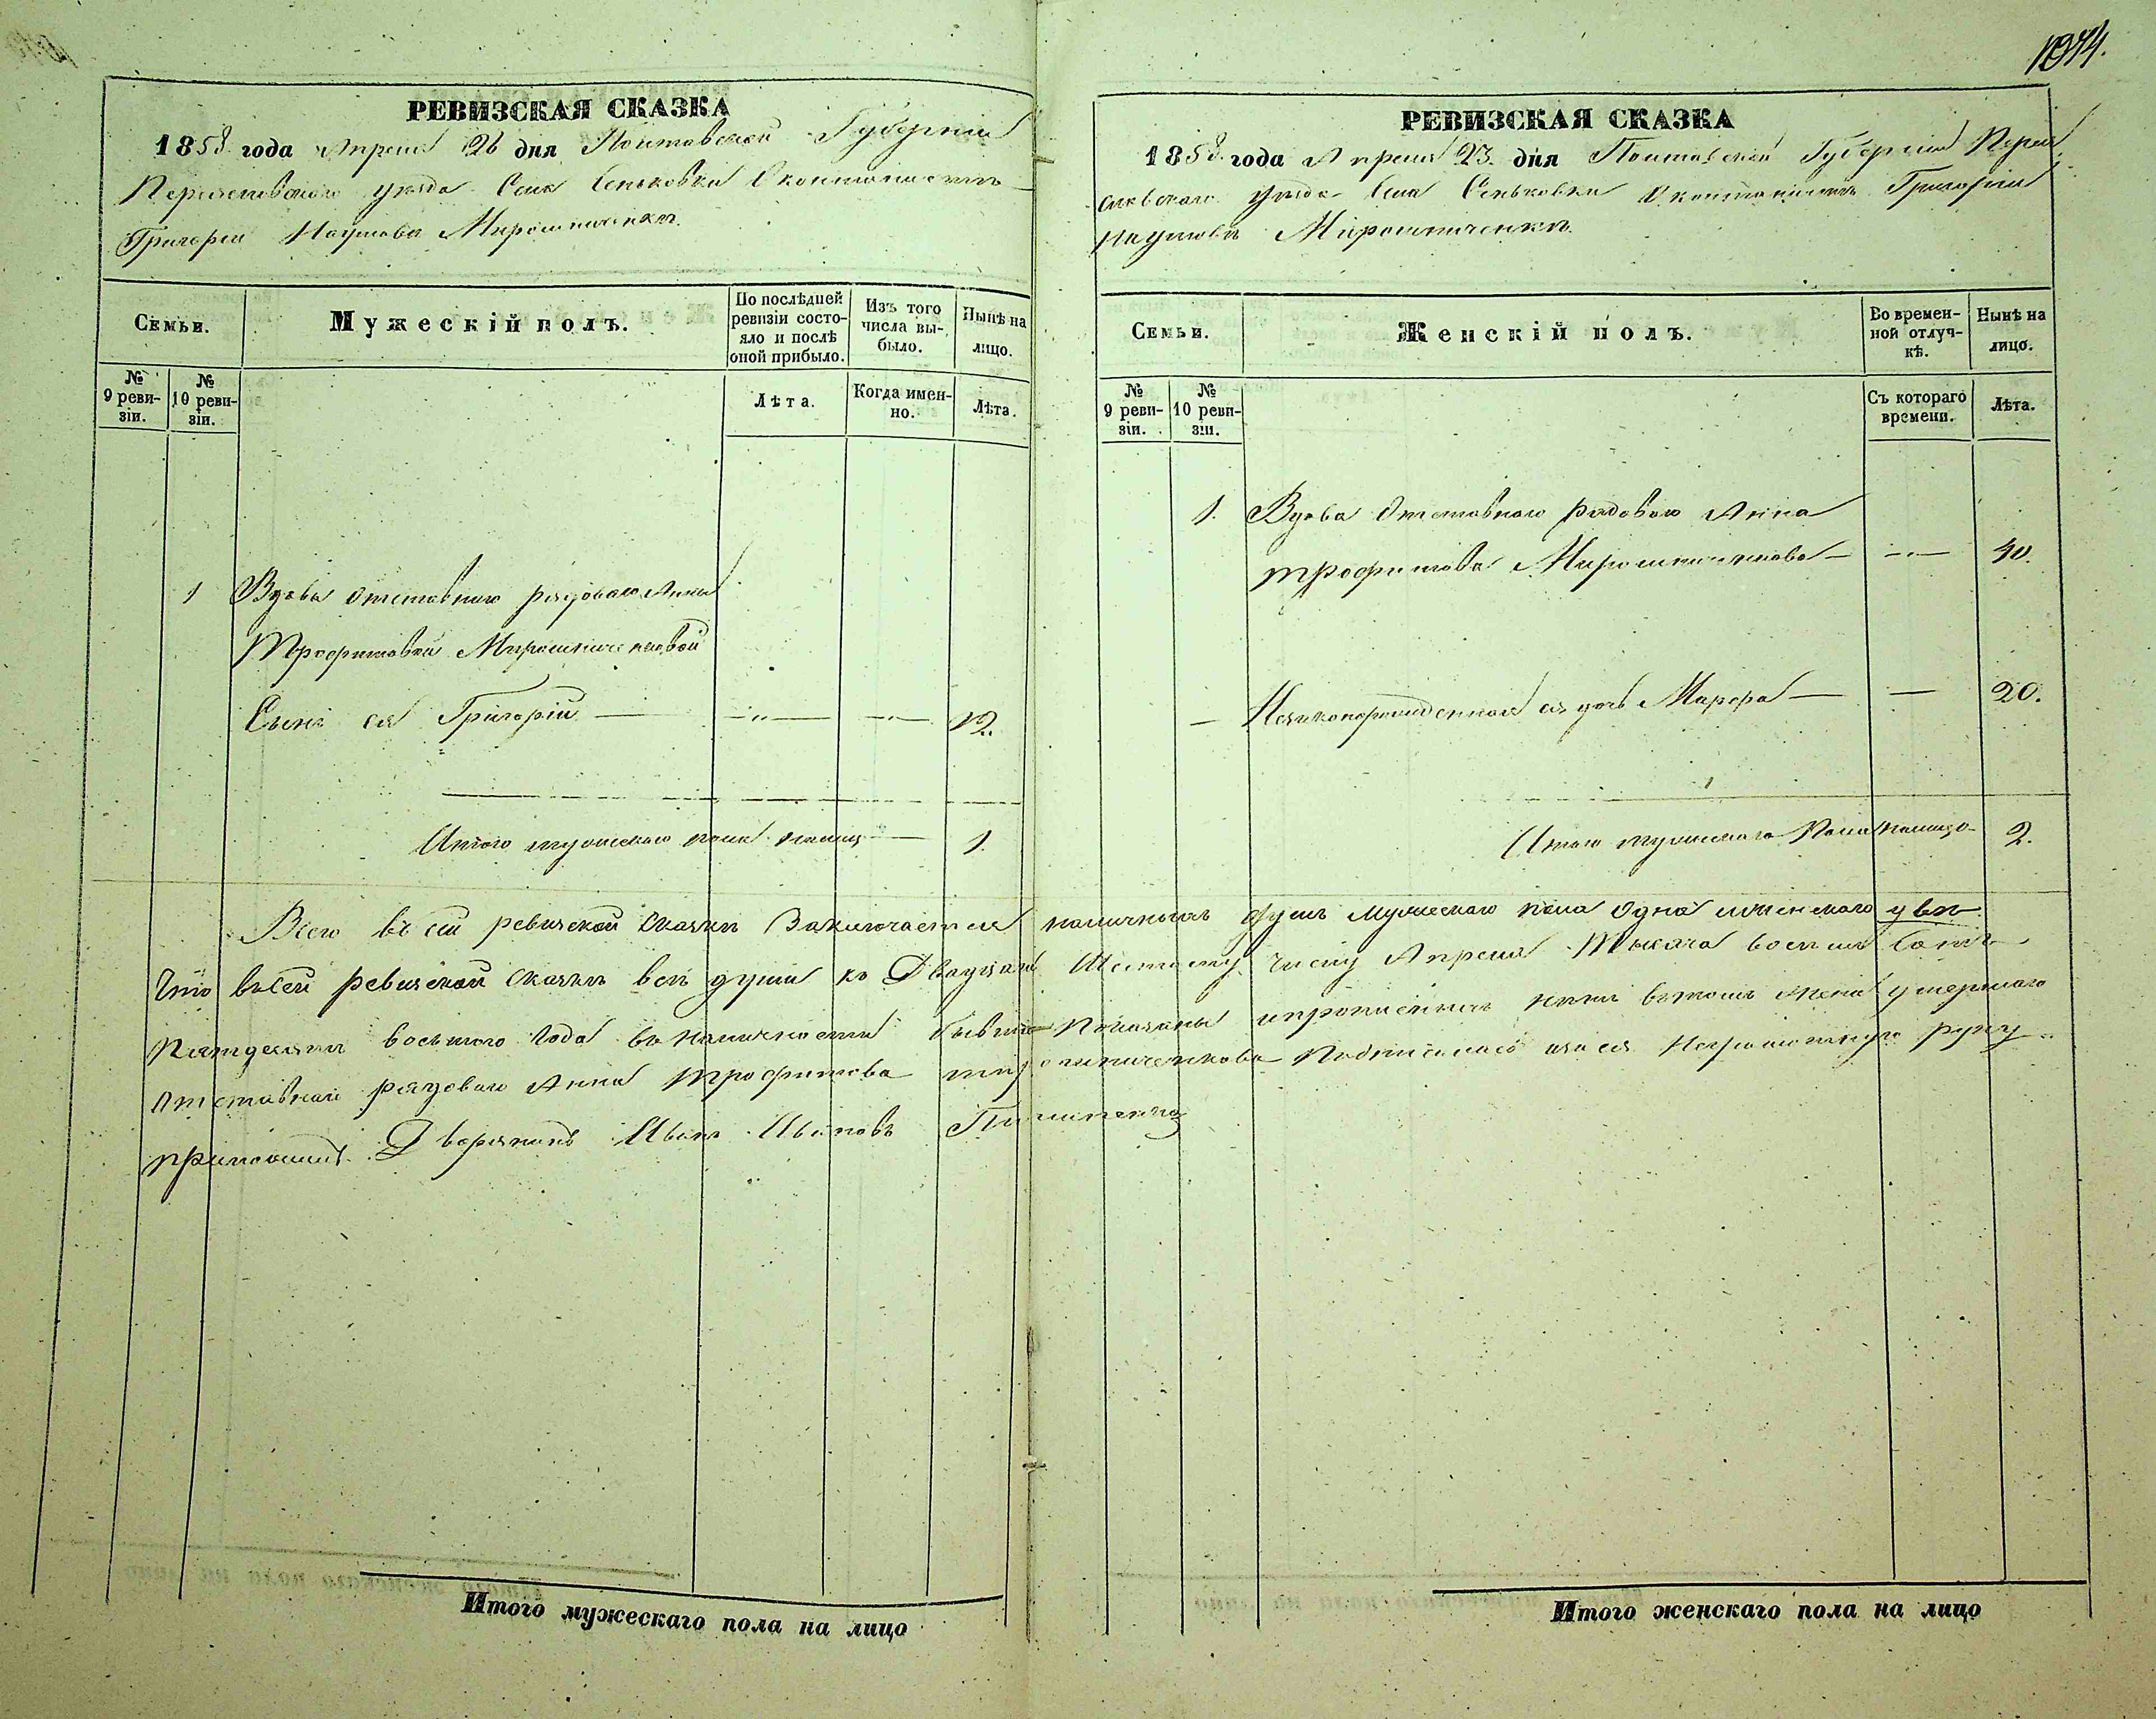 1044.
РЕВИЗСКАЯ СКАЗКА
1858 года Апреля 26 дня Полтавской Губернии
Переяславского уезда Села Сеньковки О кантонисте
Григории Наумове Мирошниченке.
Семьи.
Мужескій полъ.
По послѣдней ревизіи состояло и послѣ оной прибыло.
Изъ того числа выбыло.
Нынѣ на лицо.
№ 9 ревизіи.
№ 10 ревизіи.
Лѣта.
Когда именно.
Лѣта.
1 Вдовы отставнаго рядоваго Анны
Трофимовой Мирошниченковой
Сынъ ея Григорій — —"— —"— 12.
Итого мужескаго пола налицо — 1.
РЕВИЗСКАЯ СКАЗКА
1858 года Апреля 23 дня Полтавской Губернии Перея
славскаго уезда Села Сеньковки О кантонисте Григории
Наумове Мирошниченке.
Семьи.
Женскій полъ.
Во временной отлучкѣ.
Нынѣ на лицо.
№ 9 ревизіи.
№ 10 ревизіи.
Съ котораго времени.
Лѣта.
1. Вдова Отставнаго рядоваго Анна
Трофимова Мирошниченкова — —"— 40.
— ея дочь Марфа — — 20.
Итого Пола налицо 2.
Всего въ сей ревизской сказке Заключается наличныхъ душъ мужескаго пола одна женскаго две
Что въ сей ревизской сказке все души къ Двадцать Шестому числу Апреля Тысяча восемь сотъ
Пятдесятъ восьмого года въ наличности бывшие Показаны и прописныхъ нетъ въ томъ жена умершаго
Отставнаго рядоваго Анна Трофимова Мирошниченкова Неграмотную руку
приложилъ Дворянинъ Иванъ Ивановъ
Итого мужескаго пола на лицо
Итого женскаго пола на лицо